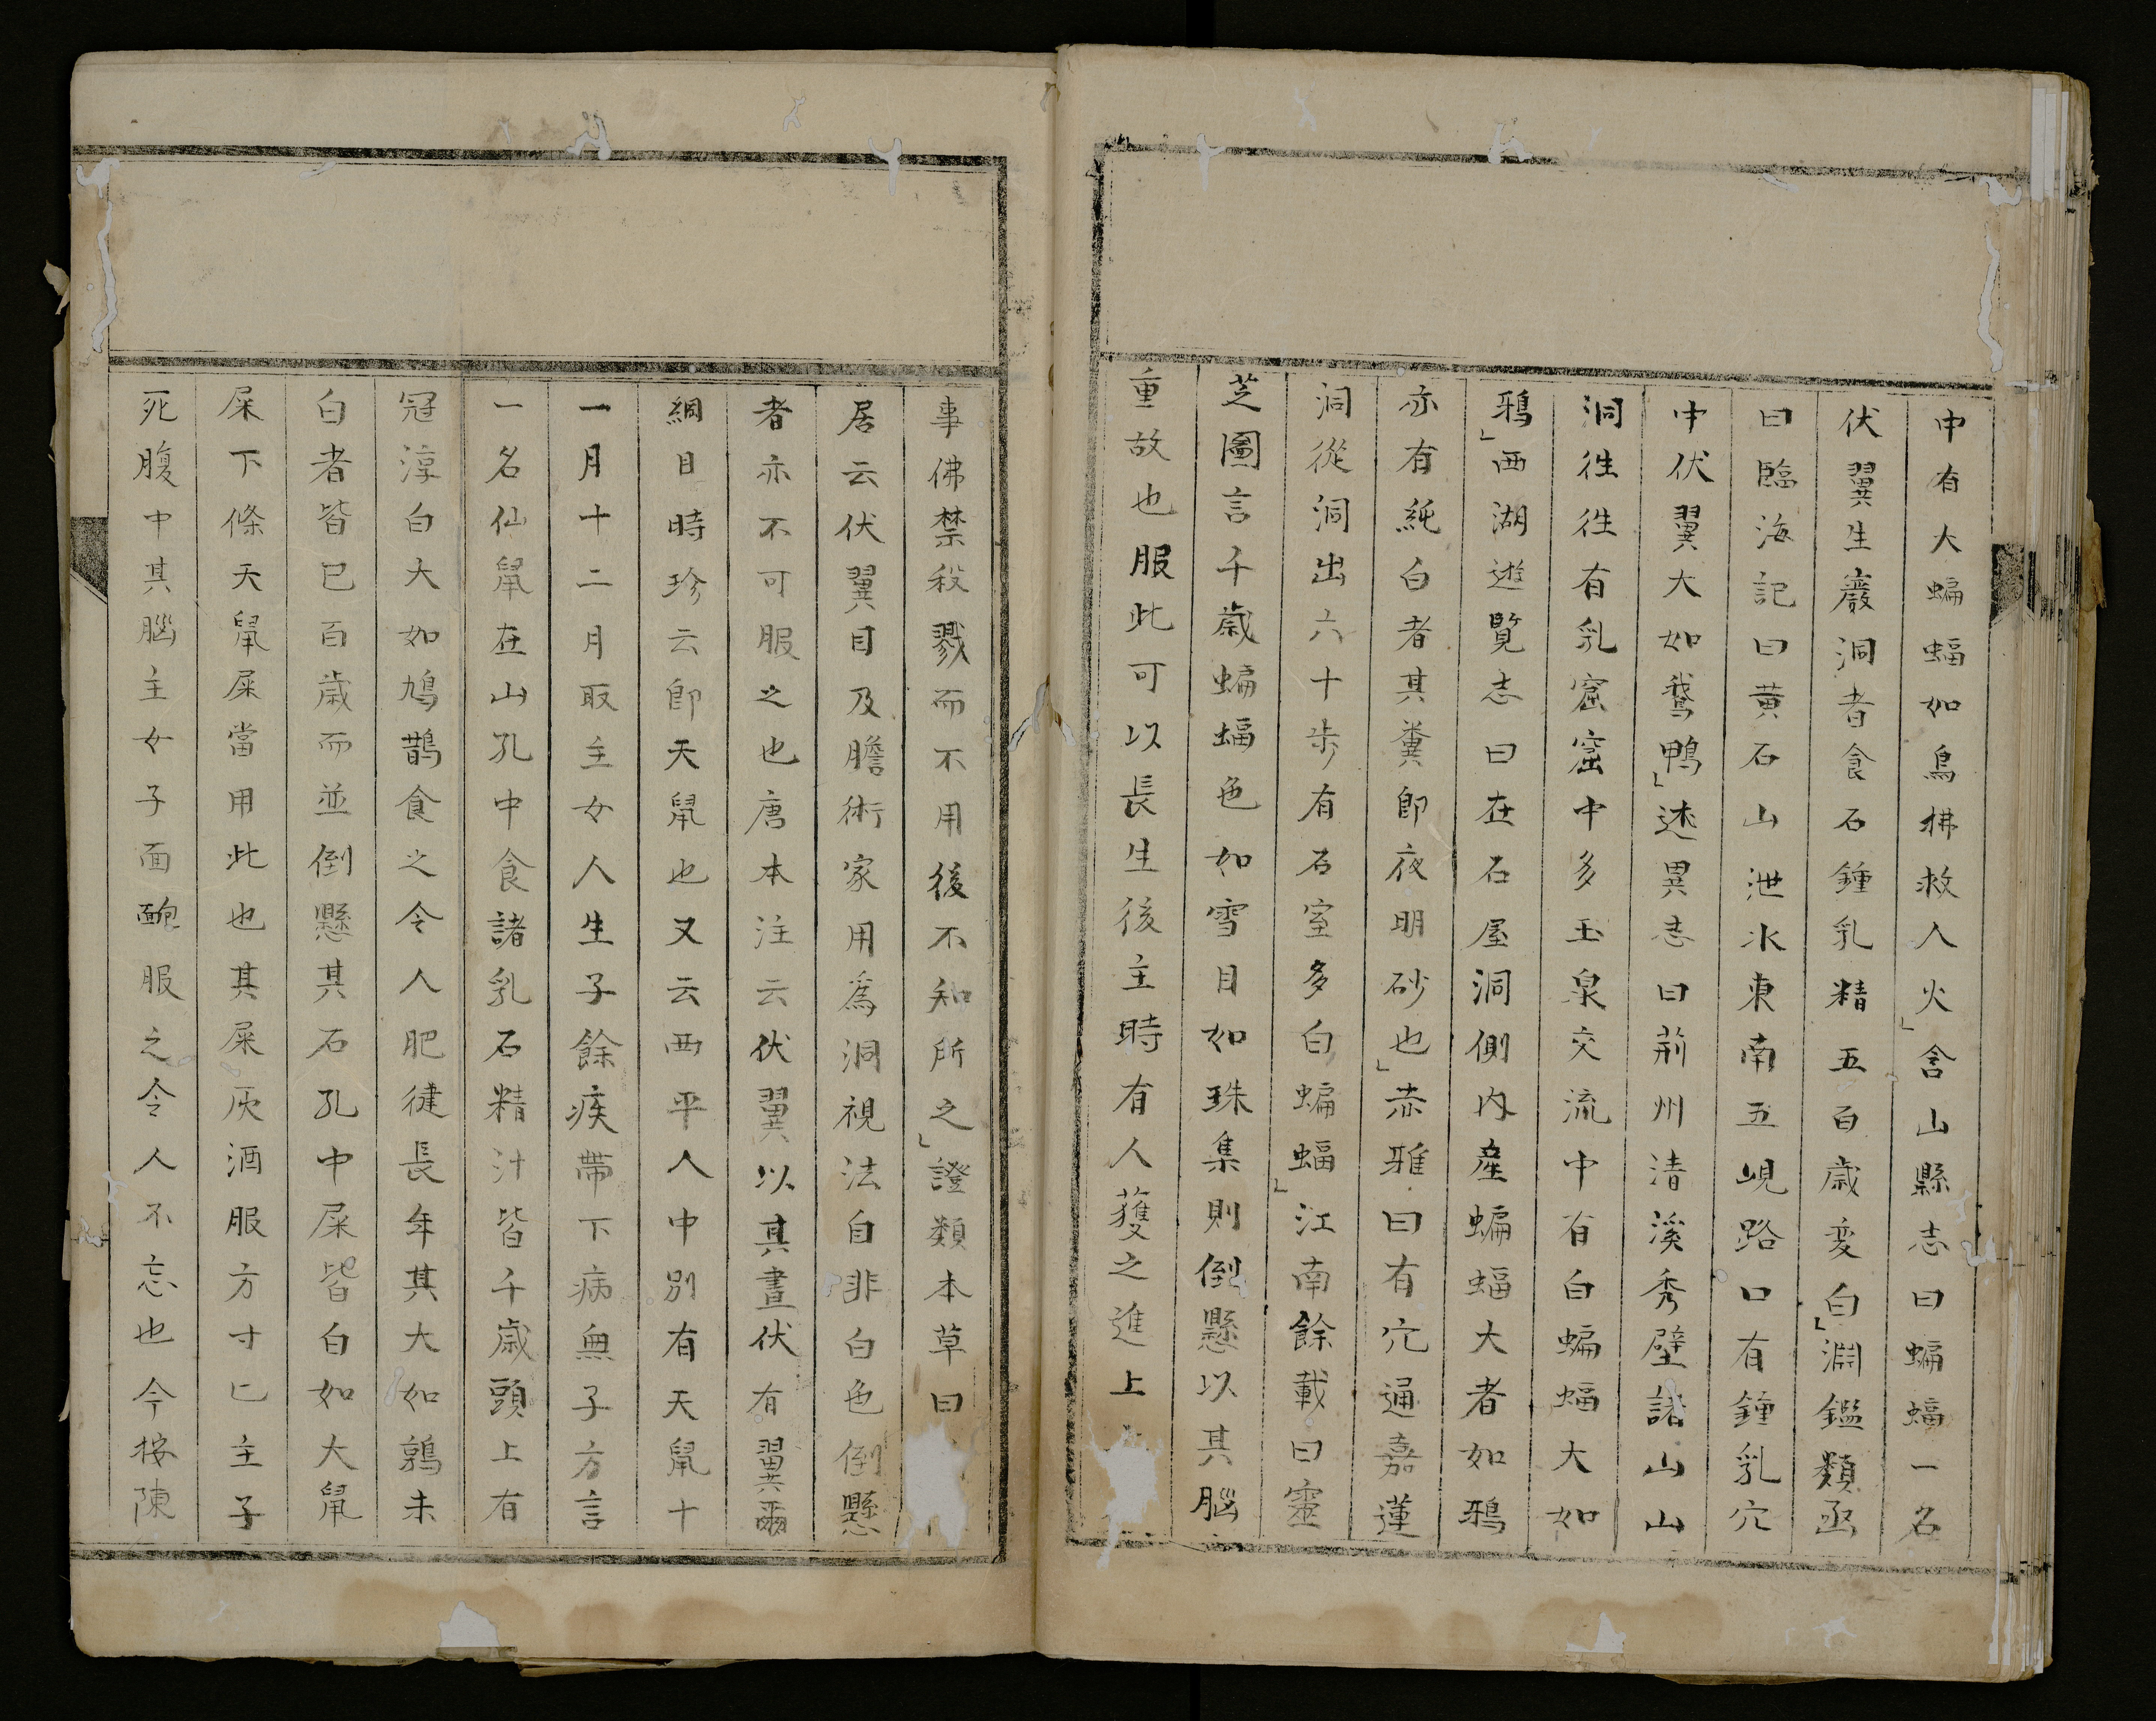 中有大蝙蝠如烏拂救人火」含山縣志曰蝙蝠一名
伏翼生巖洞者食石鍾乳精五百歳変白」淵鑑類函
曰臨海記曰黄石山泄水東南五峴路口有鍾乳穴
中伏翼大如鵞鴨」述異志曰荊州清溪秀壁諸山山
洞徃徃有乳窟窟中多玉泉交流中有白蝙蝠大如
鴉」西湖遊覧志曰在石屋洞側内産蝙蝠大者如鴉
亦有純白者其糞即夜明砂也」赤雅曰有穴通嘉蓮
洞從洞出六十歩有石室多白蝙蝠」江南餘載曰靈
芝圖言千歳蝙蝠色如雪目如珠集則倒懸以其腦
重故也服此可以長生後主時有人獲之進上
事佛禁殺戮而不用後不知所之」證類本草曰
居云伏翼目及膽術家用爲洞視法自非白色倒懸
者亦不可服之也唐本注云伏翼以其晝伏有翼爾
綱目時珍云即天鼠也又云西平人中別有天鼠十
一月十二月取主女人生子餘疾帶下病無子方言
一名仙鼠在山孔中食諸乳石精汁皆千歳頭上有
冠淳白大如鳩鵲食之令人肥健長年其大如鶉未
白者皆已百歳而並倒懸其石孔中屎皆白如大鼠
屎下條天鼠屎當用此也其屎灰酒服方寸匕主子
死腹中其腦主女子面皰服之令人不忘也今按陳